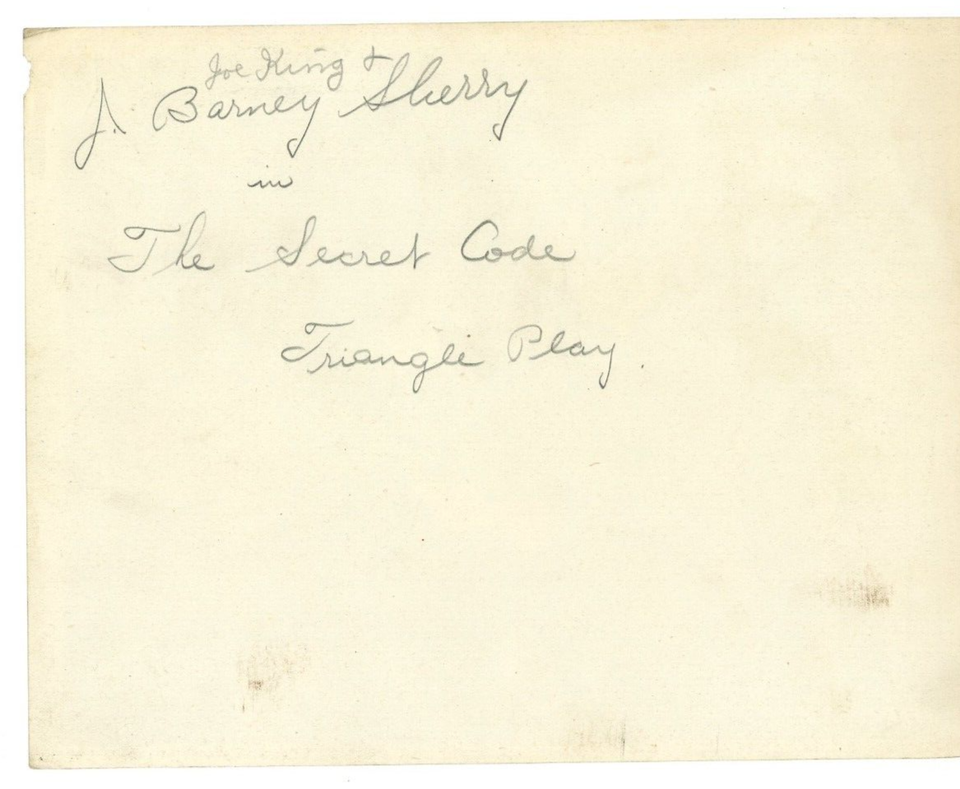 Joe King +
J. Barney Sherry
in
The Secret Code
Triangle Play.